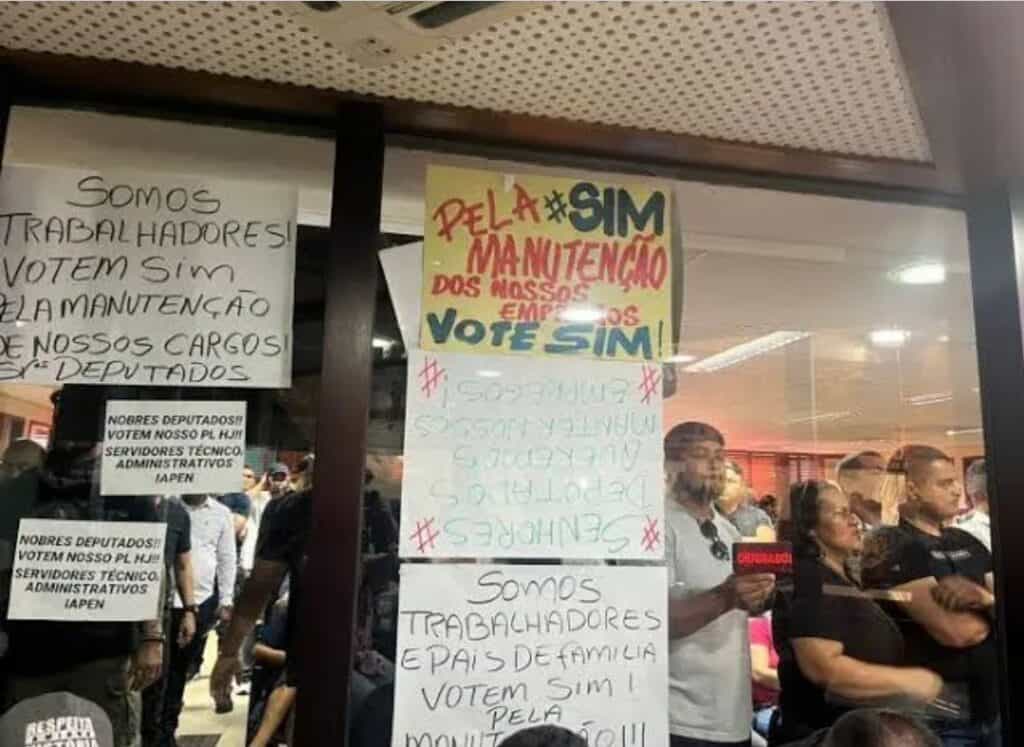 SOMOS
TRABALHADORES!
VOTEM SIM
PELA MANUTENÇÃO
DE NOSSOS CARGOS!
Srs DEPUTADOS
NOBRES DEPUTADOS!!
VOTEM NOSSO PL HJ!!
SERVIDORES TÉCNICO,
ADMINISTRATIVOS
IAPEN
NOBRES DEPUTADOS!!
VOTEM NOSSO PL HJ!!
SERVIDORES TÉCNICO,
ADMINISTRATIVOS
IAPEN
PELA #SIM
MANUTENÇÃO
DOS NOSSOS
EMPREGOS
VOTE SIM!
# SENHORES #
DEPUTADOS
QUEREMOS
MANTER NOSSOS
# EMPREGOS! #
SOMOS
TRABALHADORES
E PAIS DE FAMILIA
VOTEM SIM!
PELA
RESPEITA